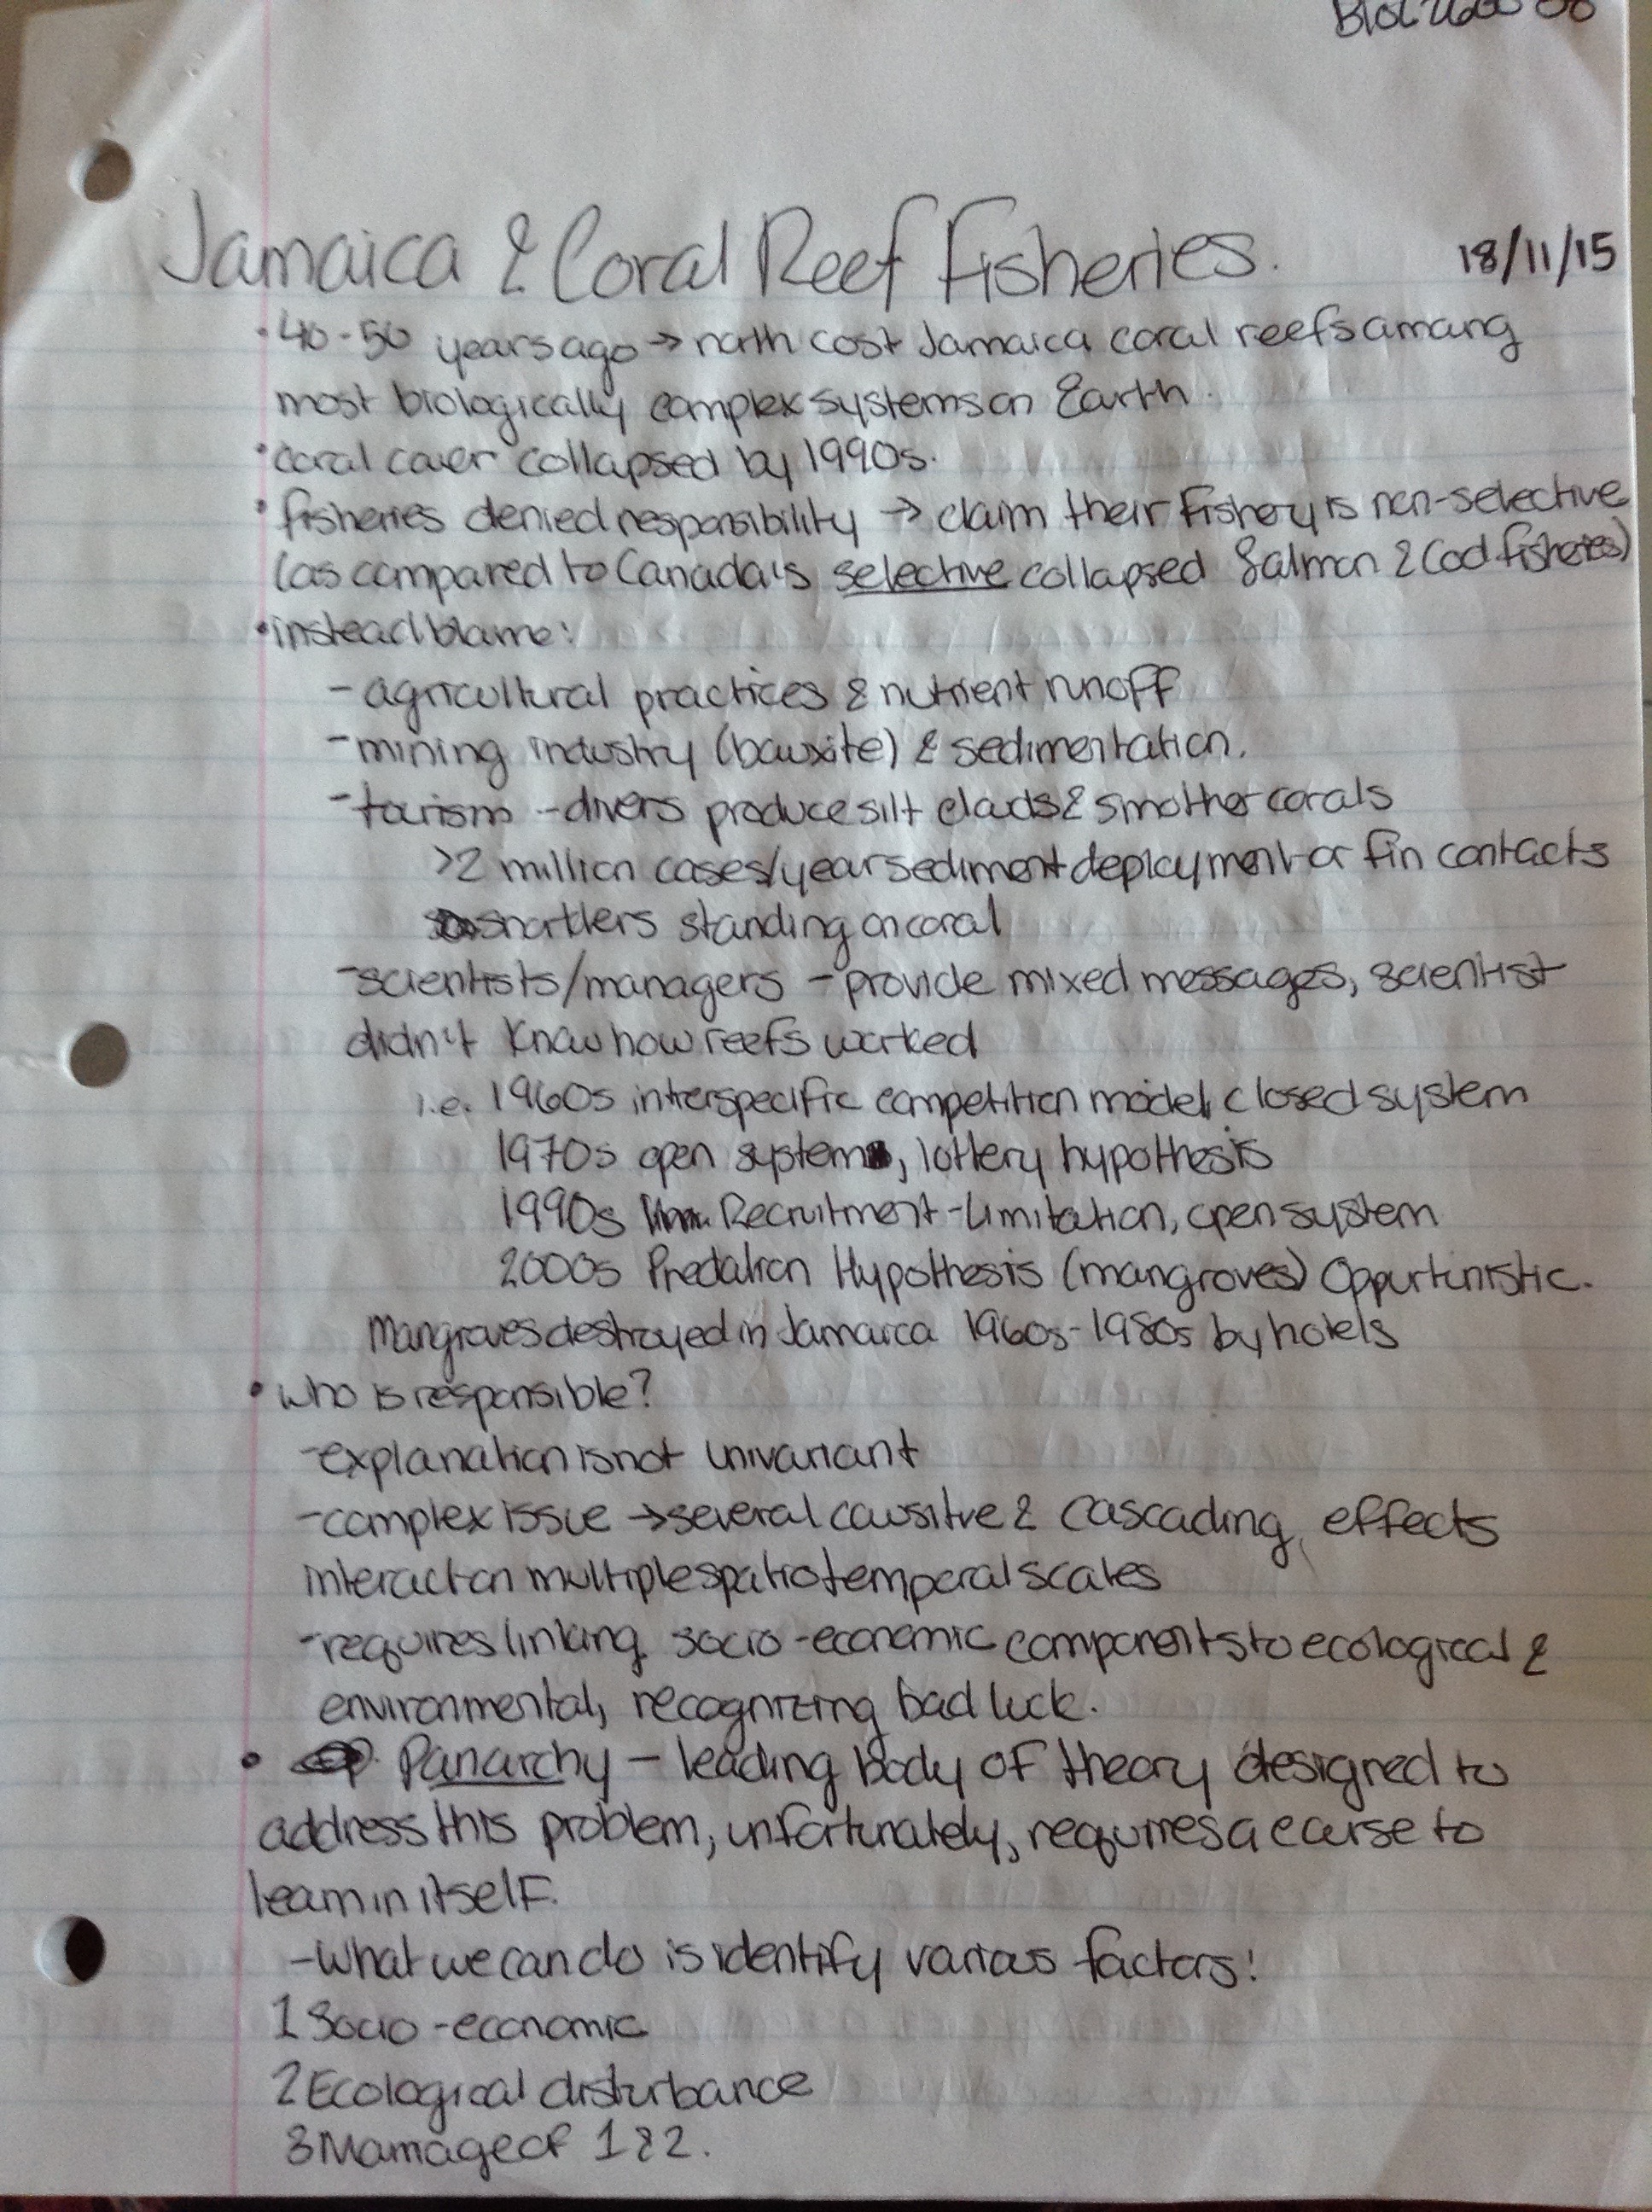 Jamaica & Coral Reef Fisheries.
18/11/15
• 40-50 years ago → north cost Jamaica coral reefs among
most biologically complex systems on Earth.
• coral cover collapsed by 1990s.
• fisheries denied responsibility → claim their Fishery is non-selective
(as compared to Canada's selective collapsed Salmon & Cod fisheries)
• instead blame:
- agricultural practices & nutrient runoff
- mining industry (bauxite) & sedimentation.
- tourism - divers produce silt clouds & smother corals
>2 million cases/year sediment deployment or fin contacts
snorklers standing on coral
- scientists/managers - provide mixed messages, scientist
didn't know how reefs worked
i.e. 1960s interspecific competition model, closed system
1970s open system, lottery hypothesis
1990s Recruitment-Limitation, open system
2000s Predation Hypothesis (mangroves) Oppurtunistic.
Mangroves destroyed in Jamaica 1960s-1980s by hotels
• who is responsible?
- explanation is not univariant
- complex issue → several causitive & cascading effects
interact on multiple spatiotemporal scales
- requires linking socio-economic components to ecological &
environmental, recognizing bad luck.
• Panarchy - leading body of theory designed to
address this problem, unfortunately, requires a course to
learn in itself.
- What we can do is identify various factors!
1 Socio-economic
2 Ecological disturbance
3 Mamage of 1 & 2.